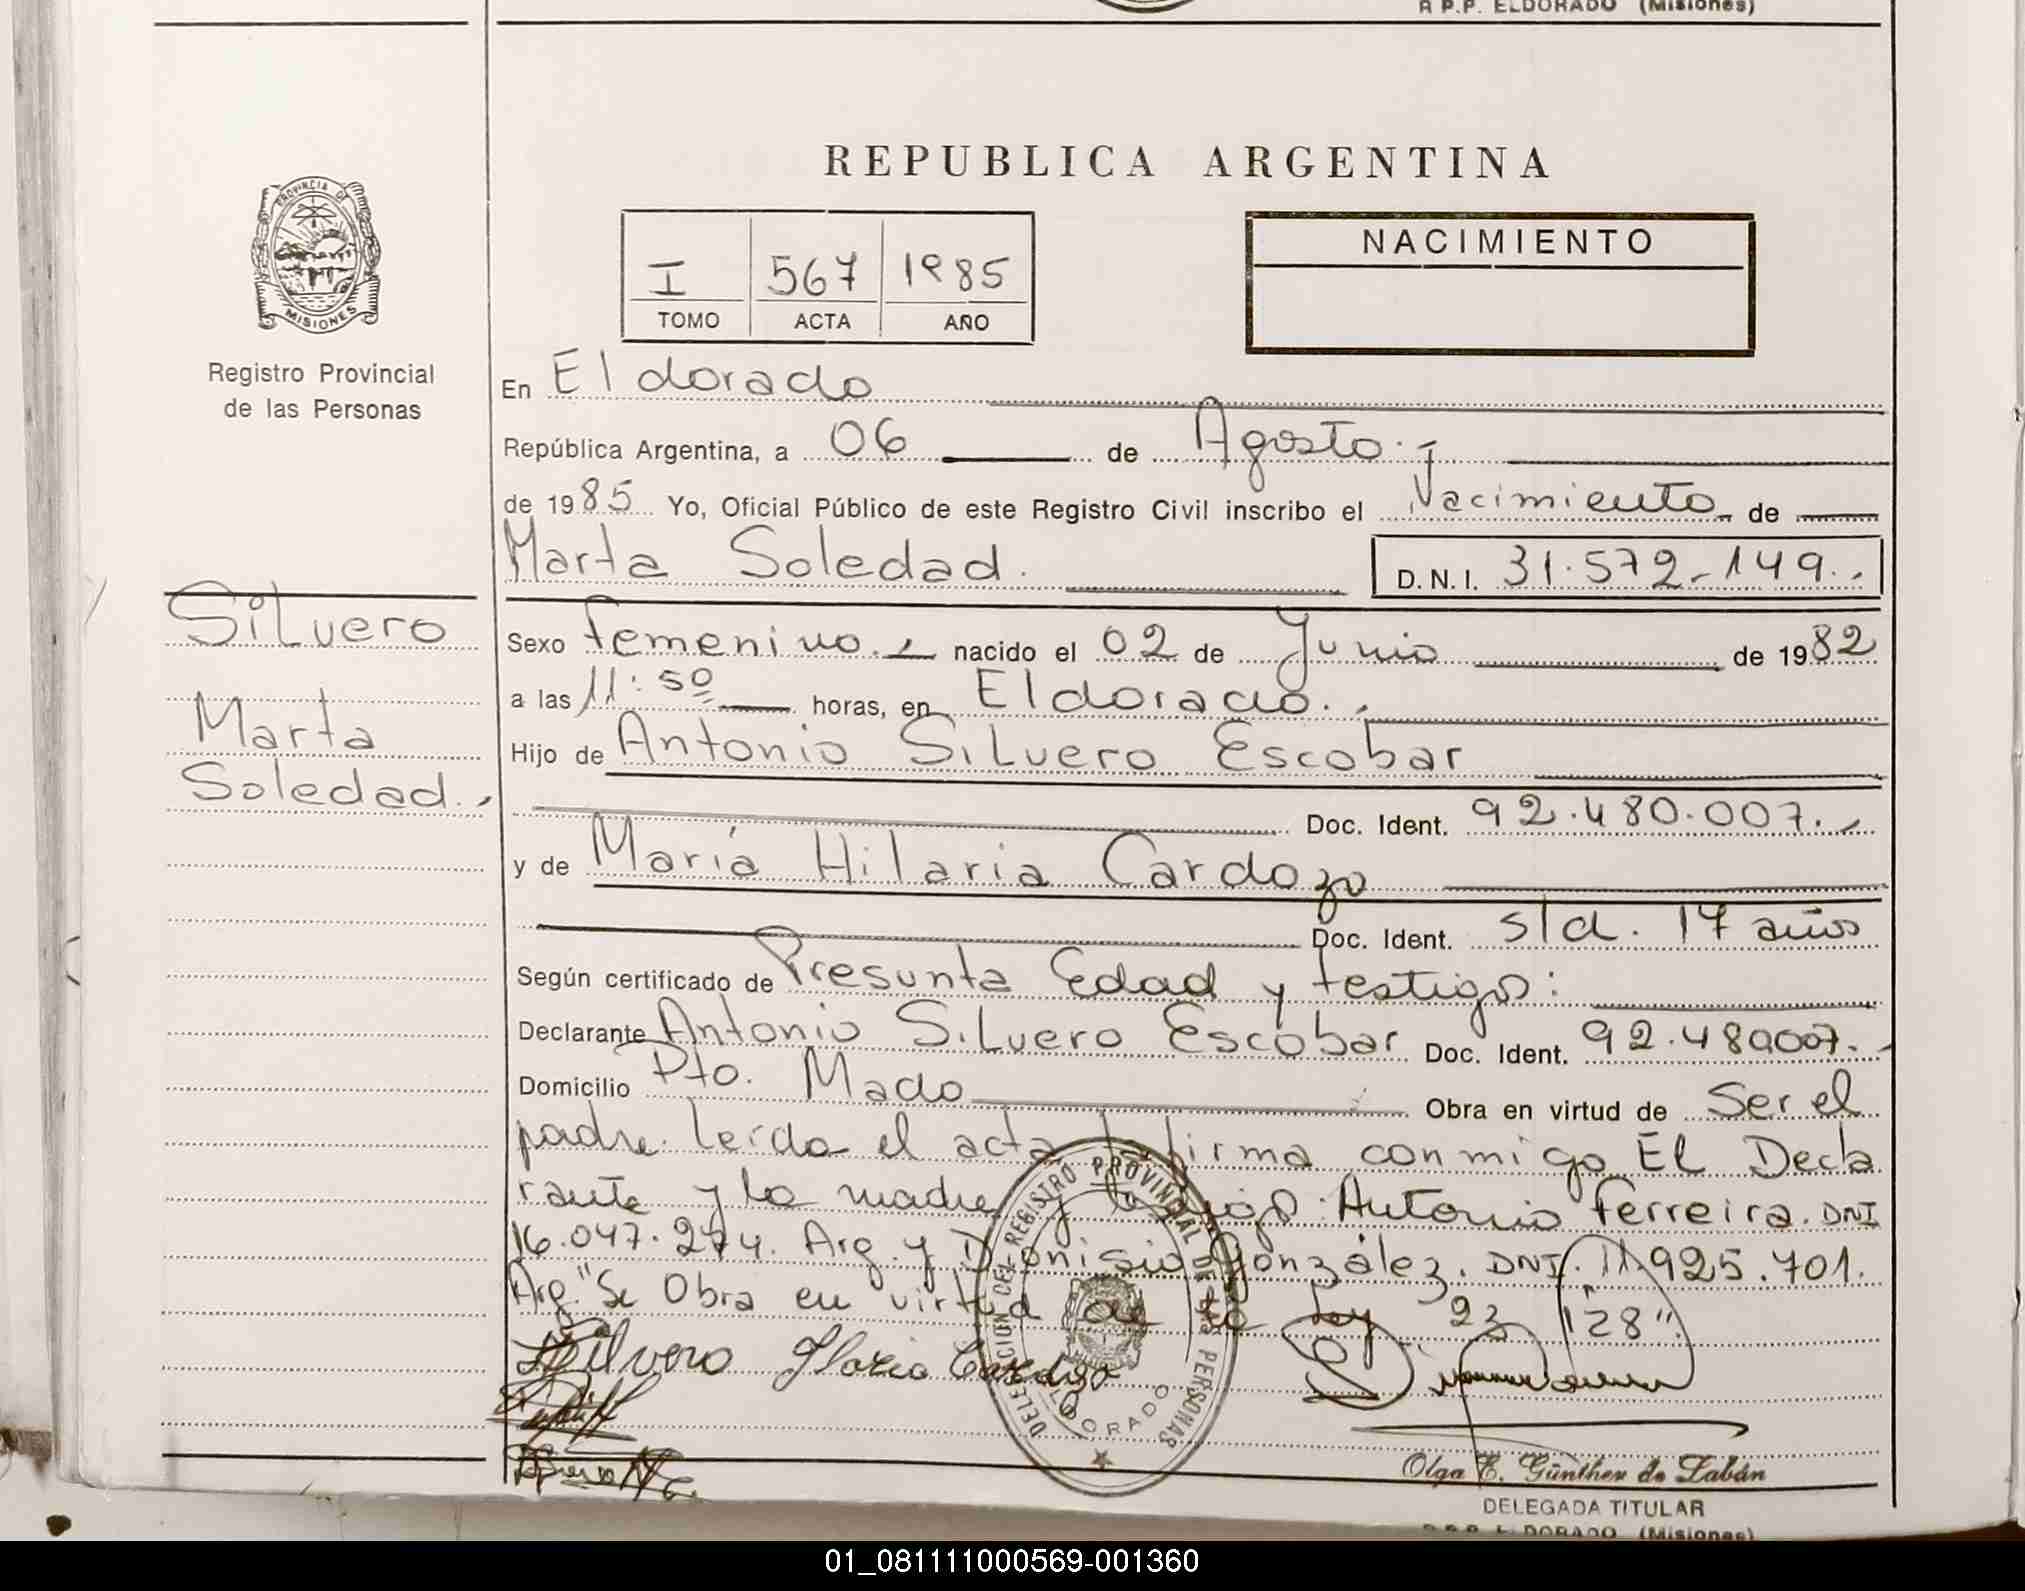 R.P.P. ELDORADO (Misiones)
REPUBLICA ARGENTINA
PROVINCIA DE
MISIONES
Registro Provincial
de las Personas
I 567 1985
TOMO ACTA AÑO
NACIMIENTO
En Eldorado
República Argentina, a 06 de Agosto.-
de 1985 Yo, Oficial Público de este Registro Civil inscribo el Nacimiento de
Marta Soledad. D.N.I. 31.572-149.-
Silvero
Marta
Soledad.-
Sexo femenino.- nacido el 02 de Junio de 1982
a las 11:50 horas, en Eldorado.-
Hijo de Antonio Silvero Escobar
Doc. Ident. 92.480.007.-
y de María Hilaria Cardozo
Doc. Ident. s/d. 17 años
Según certificado de Presunta Edad y testigos:
Declarante Antonio Silvero Escobar Doc. Ident. 92.480007.-
Domicilio Pto. Mado Obra en virtud de Ser el
padre. Leída el acta firma conmigo El Decla
rante y la madre y testigos: Antonio Ferreira. DNI
16.047.274. Arg. y Dionisio González. DNI. 11.925.701.
Arg. "Se Obra en virtud de la Ley 23 128".
Silvero Ilaria Cardozo
DELEGACION DEL REGISTRO PROVINCIAL DE LAS PERSONAS
ELDORADO
Olga E. Günther de Zabán
DELEGADA TITULAR
R.P.P. ELDORADO (Misiones)
01_081111000569-001360